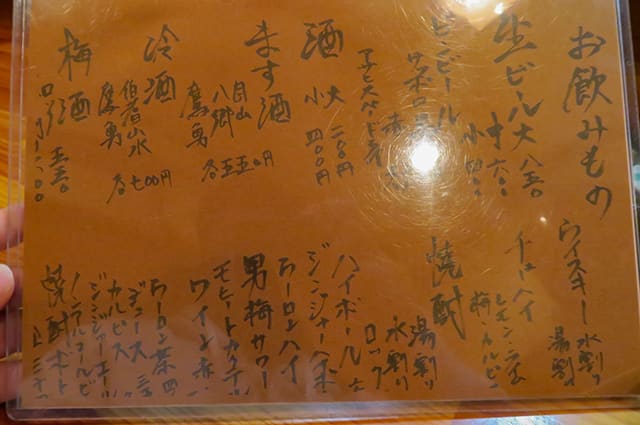 お飲みもの
生ビール 大 八五〇
中 六〇〇
小
ビンビール
サッポロ
アサヒスーパードライ
酒 大
小 四〇〇円
ます酒
八郷
鷹勇
各五五〇円
冷酒
伯耆山水
鷹勇
各七〇〇円
梅酒
ロック
五五〇
ウイスキー 水割り
湯割り
チューハイ
レモン・ライム
梅・カルピ
焼酎 湯割り
水割り
ロック
ハイボール
ジンジャーハイ
ウーロンハイ
男梅サワー
モヒートカクテル
ワイン 赤
ウーロン茶
ジュース
カルピス
ジンジャーエール
ノンアルコールビ
焼酎ボト